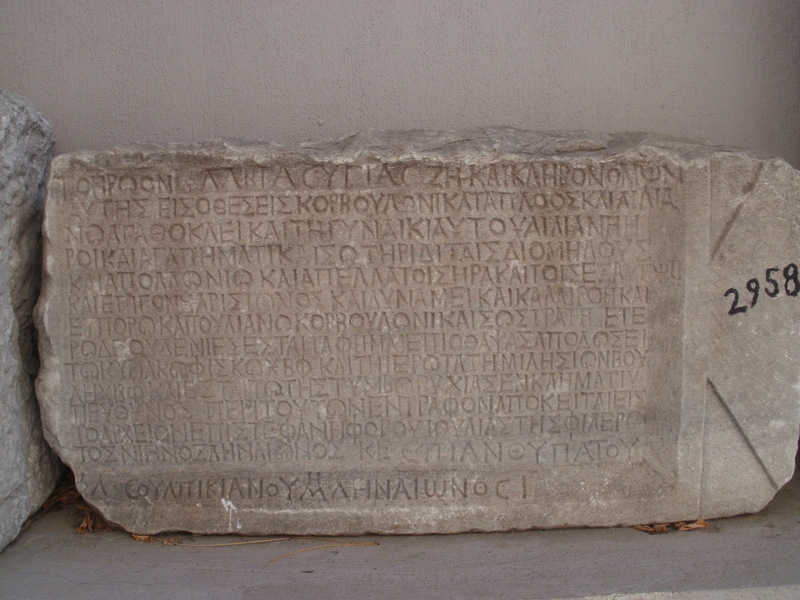 ΤΟΗΡΩΟΝ ΖΗ ΚΑΙΚΛΗΡΟΝΟΜΩΝ
ΑΥΤΗΣ ΕΙΣΟΘΕΣΕΙΣΚΟΡΒΟΥΛΩΝΙΚΑΤΑΠΛΟΟΣΚΑΙ
ΝΩΑΓΑΘΟΚΛΕΙΚΑΙΤΗΓΥΝΑΙΚΙΑΥΤΟΥΑΙΛΙΑΝΗΗ
ΡΟΙΚΑΙΑΓΑΠΗΜΑΤΙΚΑΙΣΩΤΗΡΙΔΙΤΑΙΣΔΙΟΜΗΔΟΥΣ
ΚΑΙΑΠΟΛΛΩΝΙΩΚΑΙΑΠΕΛΛΑΤΟΙΣΗΡΑΚΑΙΤΟΙΣΕΞΑΥΤΩΝ
ΚΑΙΕΠΙΓΟΝΩΑΡΙΣΤΩΝΟΣ ΚΑΙΔΥΝΑΜΕΙΚΑΙΚΑΛΛΙΡΟΗΚΑΙ
ΕΥΠΟΡΩΚΑΠΟΥΛΙΑΝΩΚΟΡΒΟΥΛΩΝΙΚΑΙΣΩΣΤΡΑΤΗ ΕΤΕ
ΡΩΔΕΟΥΔΕΝΙΕΞΕΣΤΑΙΤΑΦΗΜΑΙΕΠΙΟΘΑΨΑΣΑΠΟΔΩΣΕΙ
ΤΩΚΥΡΙΑΚΩΦΙΣΚΩ ΚΑΙΤΗΙΕΡΩΤΑΤΗΜΙΛΗΣΙΩΝΒΟΥ
ΤΗΣΤΥΜΒΩΡΥΧΙΑΣΕΝΚΛΗΜΑΤΙΥ
ΠΕΥΘΥΝΟΣ ΠΕΡΙΤΟΥΤΩΝΕΝΓΡΑΦΟΝΑΠΟΚΕΙΤΑΙΕΙΣ
ΤΟΑΡΧΕΙΟΝΕΠΙΣΤΕΦΑΝΗΦΟΡΟΥΙΟΥΛΙΑΣΤΗΣΦΙΛΕΡΩ
ΤΟΣΜΗΝΟΣΛΗΝΑΙΩΝΟΣ ΚΕ ΕΠΙΑΝΘΥΠΑΤΟΥ
ΣΟΥΛΠΙΚΙΑΝΟΥ ΛΗΝΑΙΩΝΟΣ Ι